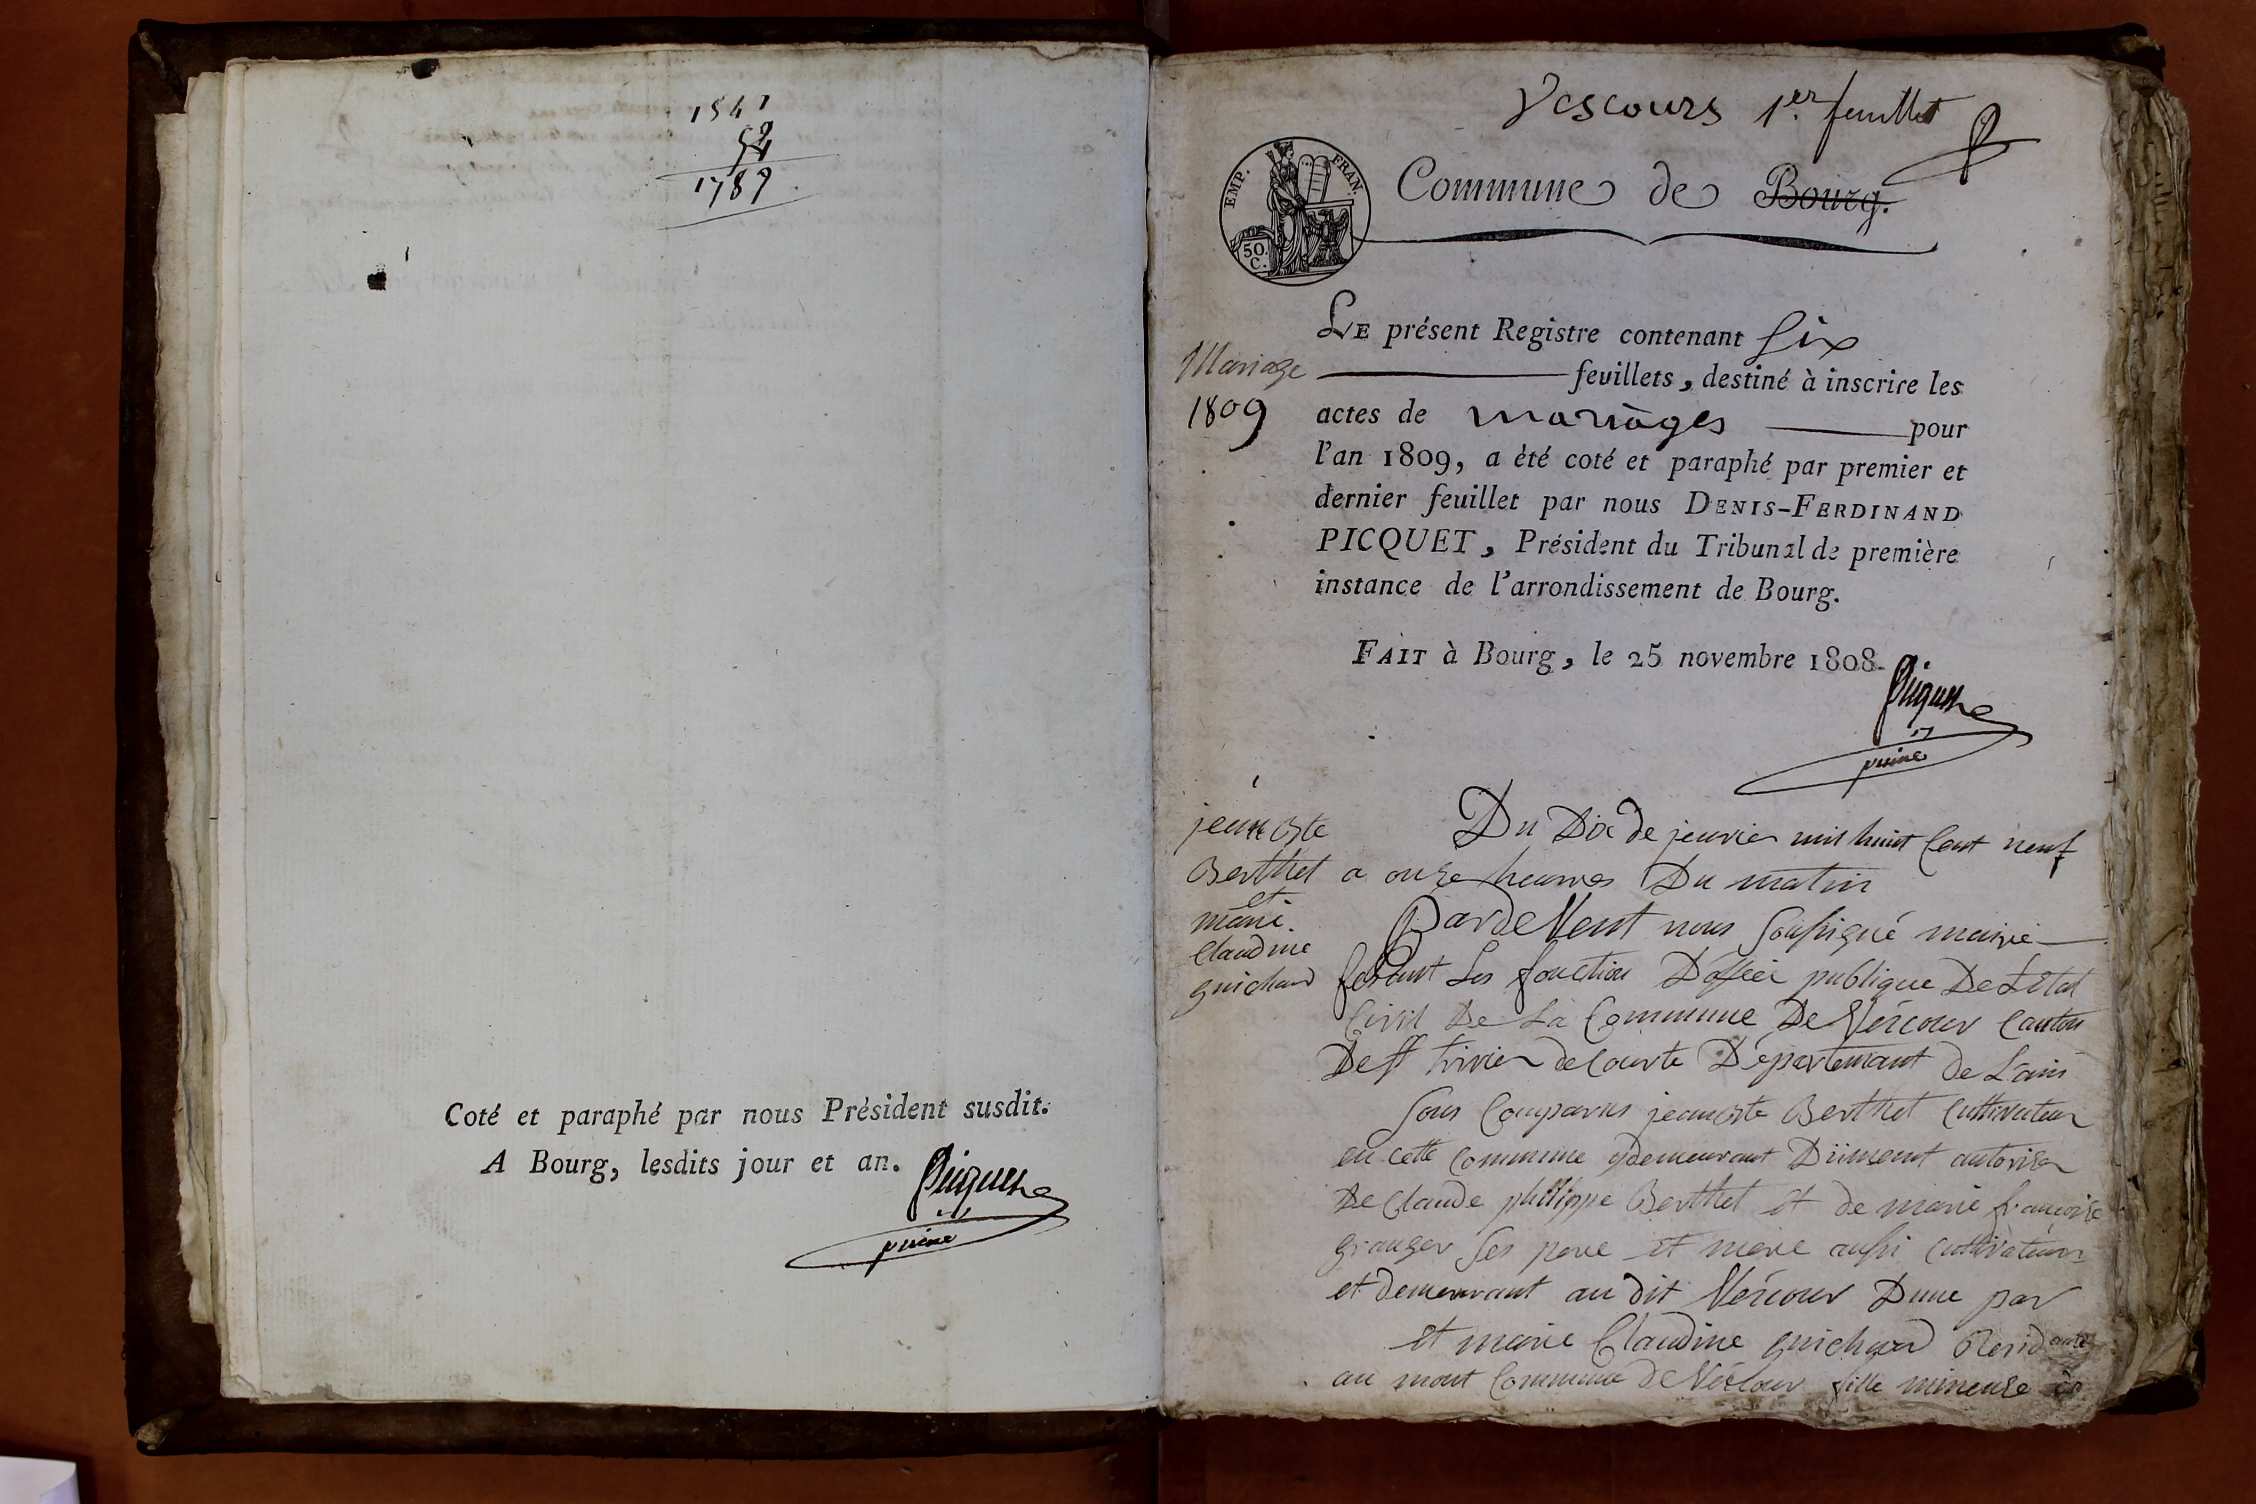 1789
Coté et paraphé par nous Président susdit.
A Bourg, lesdits jour et an.
Picquet
puiné
Vescours 1er. feuillet
EMP. FRAN.
50.
C.
Commune de Bourg.
LE présent Registre contenant six
feuillets, destiné à inscrire les
actes de mariages pour
l'an 1809, a été coté et paraphé par premier et
dernier feuillet par nous DENIS-FERDINAND
PICQUET, Président du Tribunal de première
instance de l'arrondissement de Bourg.
FAIT à Bourg, le 25 novembre 1808.
Picquet
puiné
Mariage
1809
jean Bte
Berthet
et
marie
Claudine
guichard
Du Dix de jenvier mil huit Cent neuf
a onze heures Du matin
Pardevent nous Soussigné maire
fesant Les fonction D'officié publique De L'Etat
Civil De La Commune De Vécour Canton
De St trivier de Courte Département de L'ain
Sons Comparus jean Bte Berthet Cultivateur
en cette Commune ydemeurant Dûment autoriser
De Claude philippe Berthet et de marie françoise
granger Ses pere et mere aussi Cultivateurs
et demeurant au dit Vécour Dune par
et marie Claudine guichard Residante
au mont Commune De Vécour fille mineure